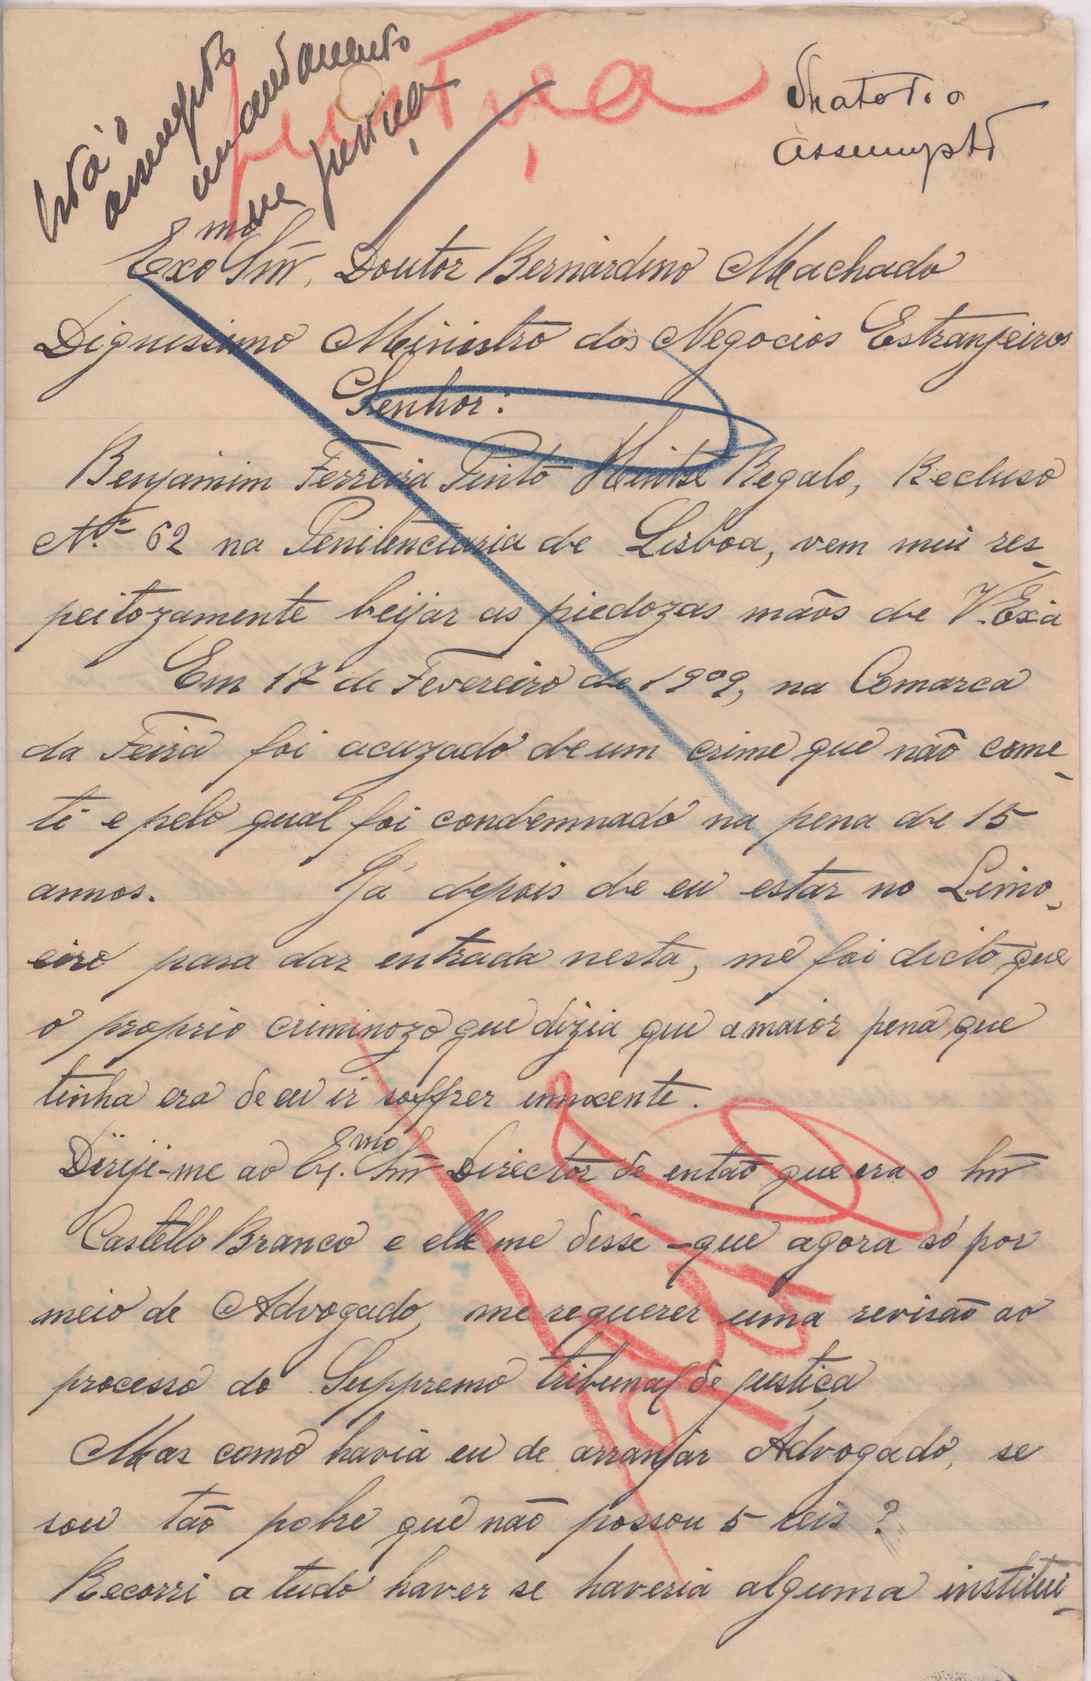 Está o
assumpto
em andamento
na justiça
Justiça
Trato do
assumpto
Exmo Snr. Doutor Bernardino Machado
Dignissimo Ministro dos Negocios Estranjeiros
Senhor:
Benjamim Ferreira Pinto Regalo, Recluso
N.º 62 na Penitenciaria de Lisboa, vem mui res-
peitozamente beijar as piedozas mãos de V. Exa
Em 17 de Fevereiro de 1909, na Comarca
da Feira foi acuzado de um crime que não come-
ti e pelo qual foi condemnado na pena de 15
annos. Já depois de eu estar no Limo-
eiro para dar entrada nesta, me foi dicto que
o proprio criminozo que dizia que a maior pena que
tinha era de eu ir soffrer innocente.
Diriji-me ao Ex.mo Snr Director de então que era o Snr
Castello Branco e elle me disse - que agora só por
meio de Advogado, me requerer uma revisão ao
processo do Suppremo tribunal de justiça
Mas como havia eu de arranjar Advogado, se
sou tão pobre que não possou 5 reis?
Recorri a tudo haver se haveria alguma institui-